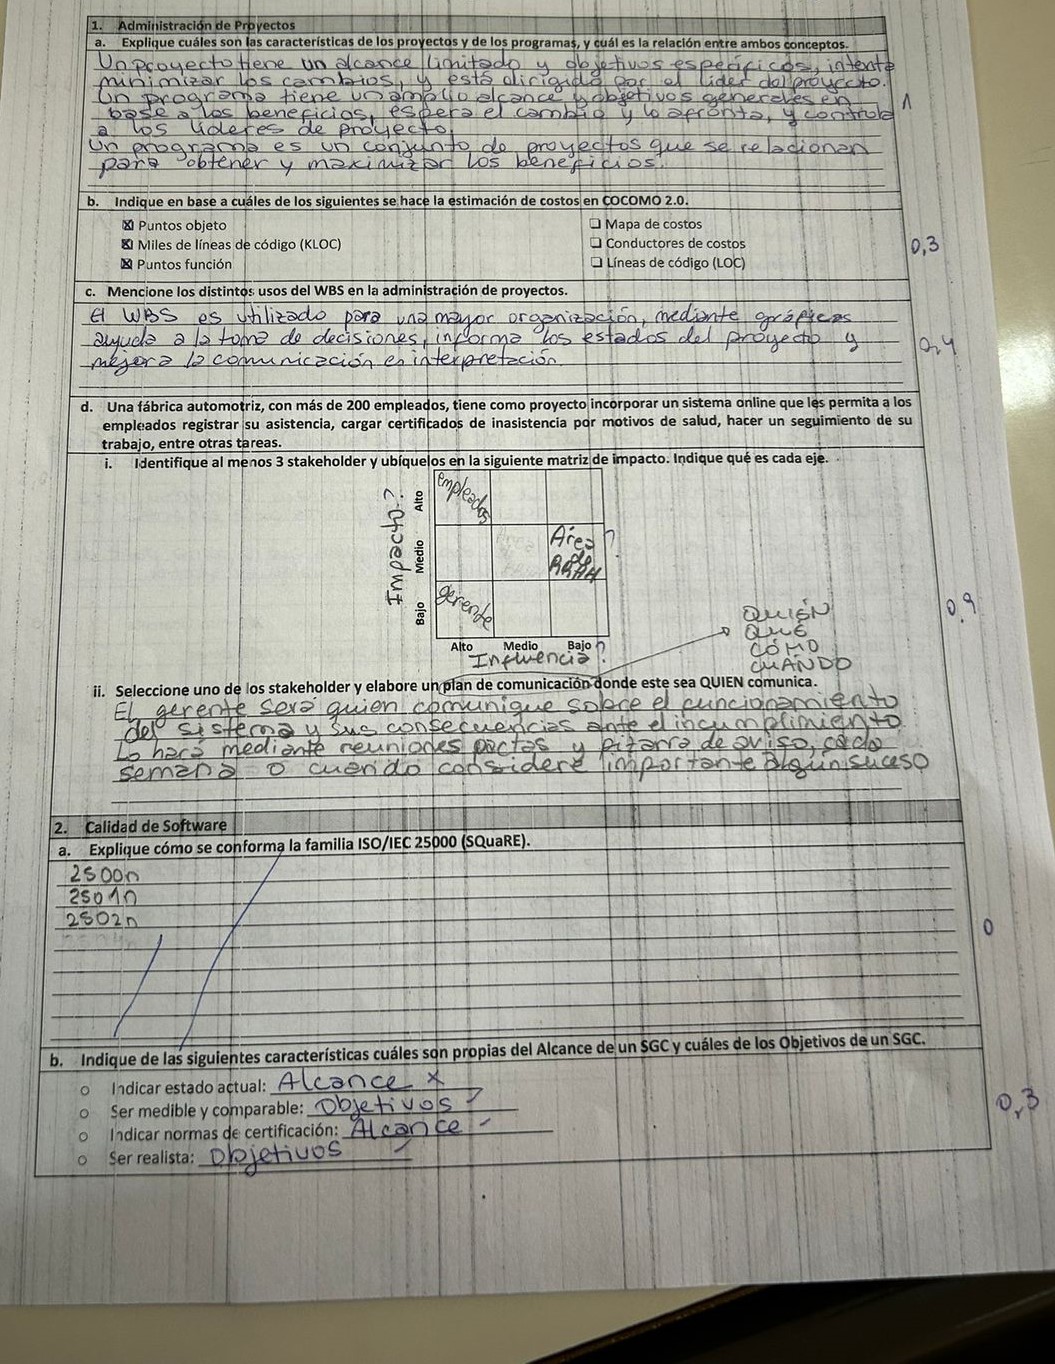 1. Administración de Proyectos
a. Explique cuáles son las características de los proyectos y de los programas, y cuál es la relación entre ambos conceptos.
Un proyecto tiene un alcance limitado y objetivos específicos, intenta
minimizar los cambios, y está dirigido por el líder del proyecto.
Un programa tiene un amplio alcance y objetivos generales en
base a los beneficios, espera el cambio y lo afronta, y controla
a los líderes de proyecto.
Un programa es un conjunto de proyectos que se relacionan
para obtener y maximizar los beneficios.
1
b. Indique en base a cuáles de los siguientes se hace la estimación de costos en COCOMO 2.0.
☒ Puntos objeto
☐ Mapa de costos
☒ Miles de líneas de código (KLOC)
☐ Conductores de costos
☒ Puntos función
☐ Líneas de código (LOC)
0,3
c. Mencione los distintos usos del WBS en la administración de proyectos.
El WBS es utilizado para una mayor organización, mediante gráficas
ayuda a la toma de decisiones, informa los estados del proyecto y
mejora la comunicación e interpretación
0,4
d. Una fábrica automotriz, con más de 200 empleados, tiene como proyecto incorporar un sistema online que les permita a los
empleados registrar su asistencia, cargar certificados de inasistencia por motivos de salud, hacer un seguimiento de su
trabajo, entre otras tareas.
i. Identifique al menos 3 stakeholder y ubíquelos en la siguiente matriz de impacto. Indique qué es cada eje.
Impacto?
Alto
Medio
Bajo
empleados
Área ?
de
RRHH
gerente
Alto Medio Bajo ?
Influencia.
0,9
QUIÉN
QUÉ
CÓMO
CUÁNDO
ii. Seleccione uno de los stakeholder y elabore un plan de comunicación donde este sea QUIEN comunica.
El gerente será quien comunique sobre el funcionamiento
del sistema y sus consecuencias ante el incumplimiento
Lo hará mediante reuniones pactas y pizarra de aviso, cada
semana o cuando considere importante algún suceso
2. Calidad de Software
a. Explique cómo se conforma la familia ISO/IEC 25000 (SQuaRE).
2500n
2501n
2502n
0
b. Indique de las siguientes características cuáles son propias del Alcance de un SGC y cuáles de los Objetivos de un SGC.
o Indicar estado actual: Alcance x
o Ser medible y comparable: Objetivos
o Indicar normas de certificación: Alcance
o Ser realista: Objetivos
0,3